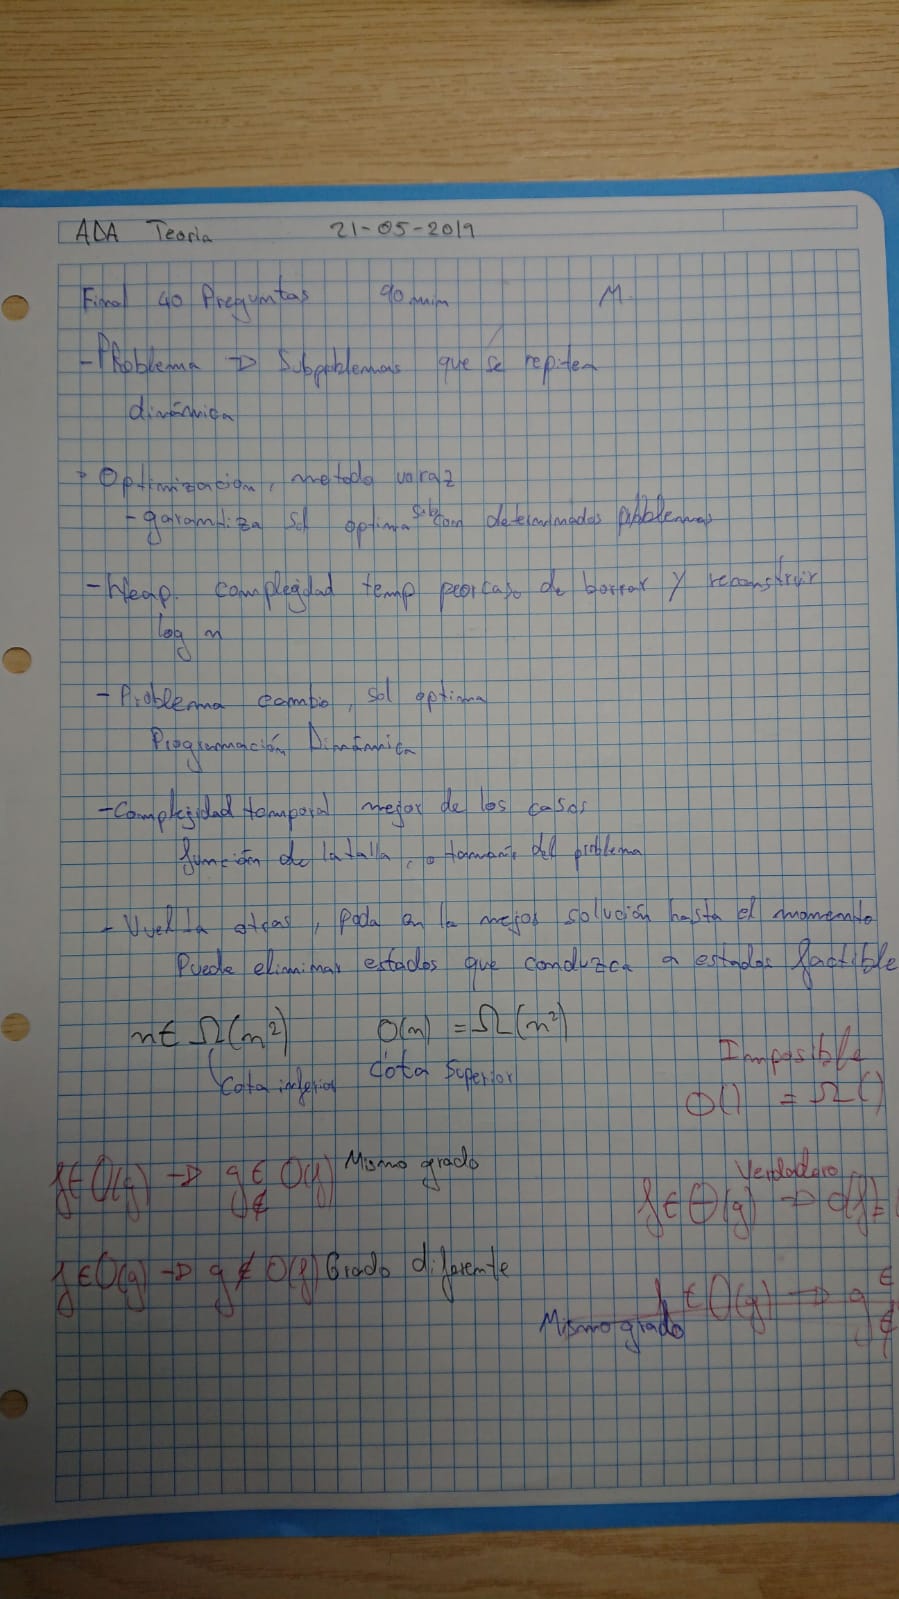 ADA Teoria 21-05-2019
Final 40 Preguntas 90 min M.
- Problema → Subproblemas que se repiten
dinámica
- Optimización, metodo voraz
- garantiza sol optima sub con determinados problemas
- Heap. complegidad temp peor caso de borrar y reconstruir
log n
- Problema cambio, sol optima
Programación Dinámica
- Complegidad temporal mejor de los casos
función de la talla, o tamaño del problema
- Vuelta atras, poda en la mejor solución hasta el momento
Puede eliminar estados que conduzca a estados factible
n ∈ Ω(n²) O(n) = Ω(n²)
Cota inferior Cota Superior
Imposible
O() = Ω()
f ∈ O(g) → g ∈ ∉ O(f) Mismo grado
Verdadero
f ∈ Θ(g) → O(f) =
f ∈ O(g) → g ∉ O(f) Grado diferente
f ∈ O(g) → g ∈ ∉
Mismo grado